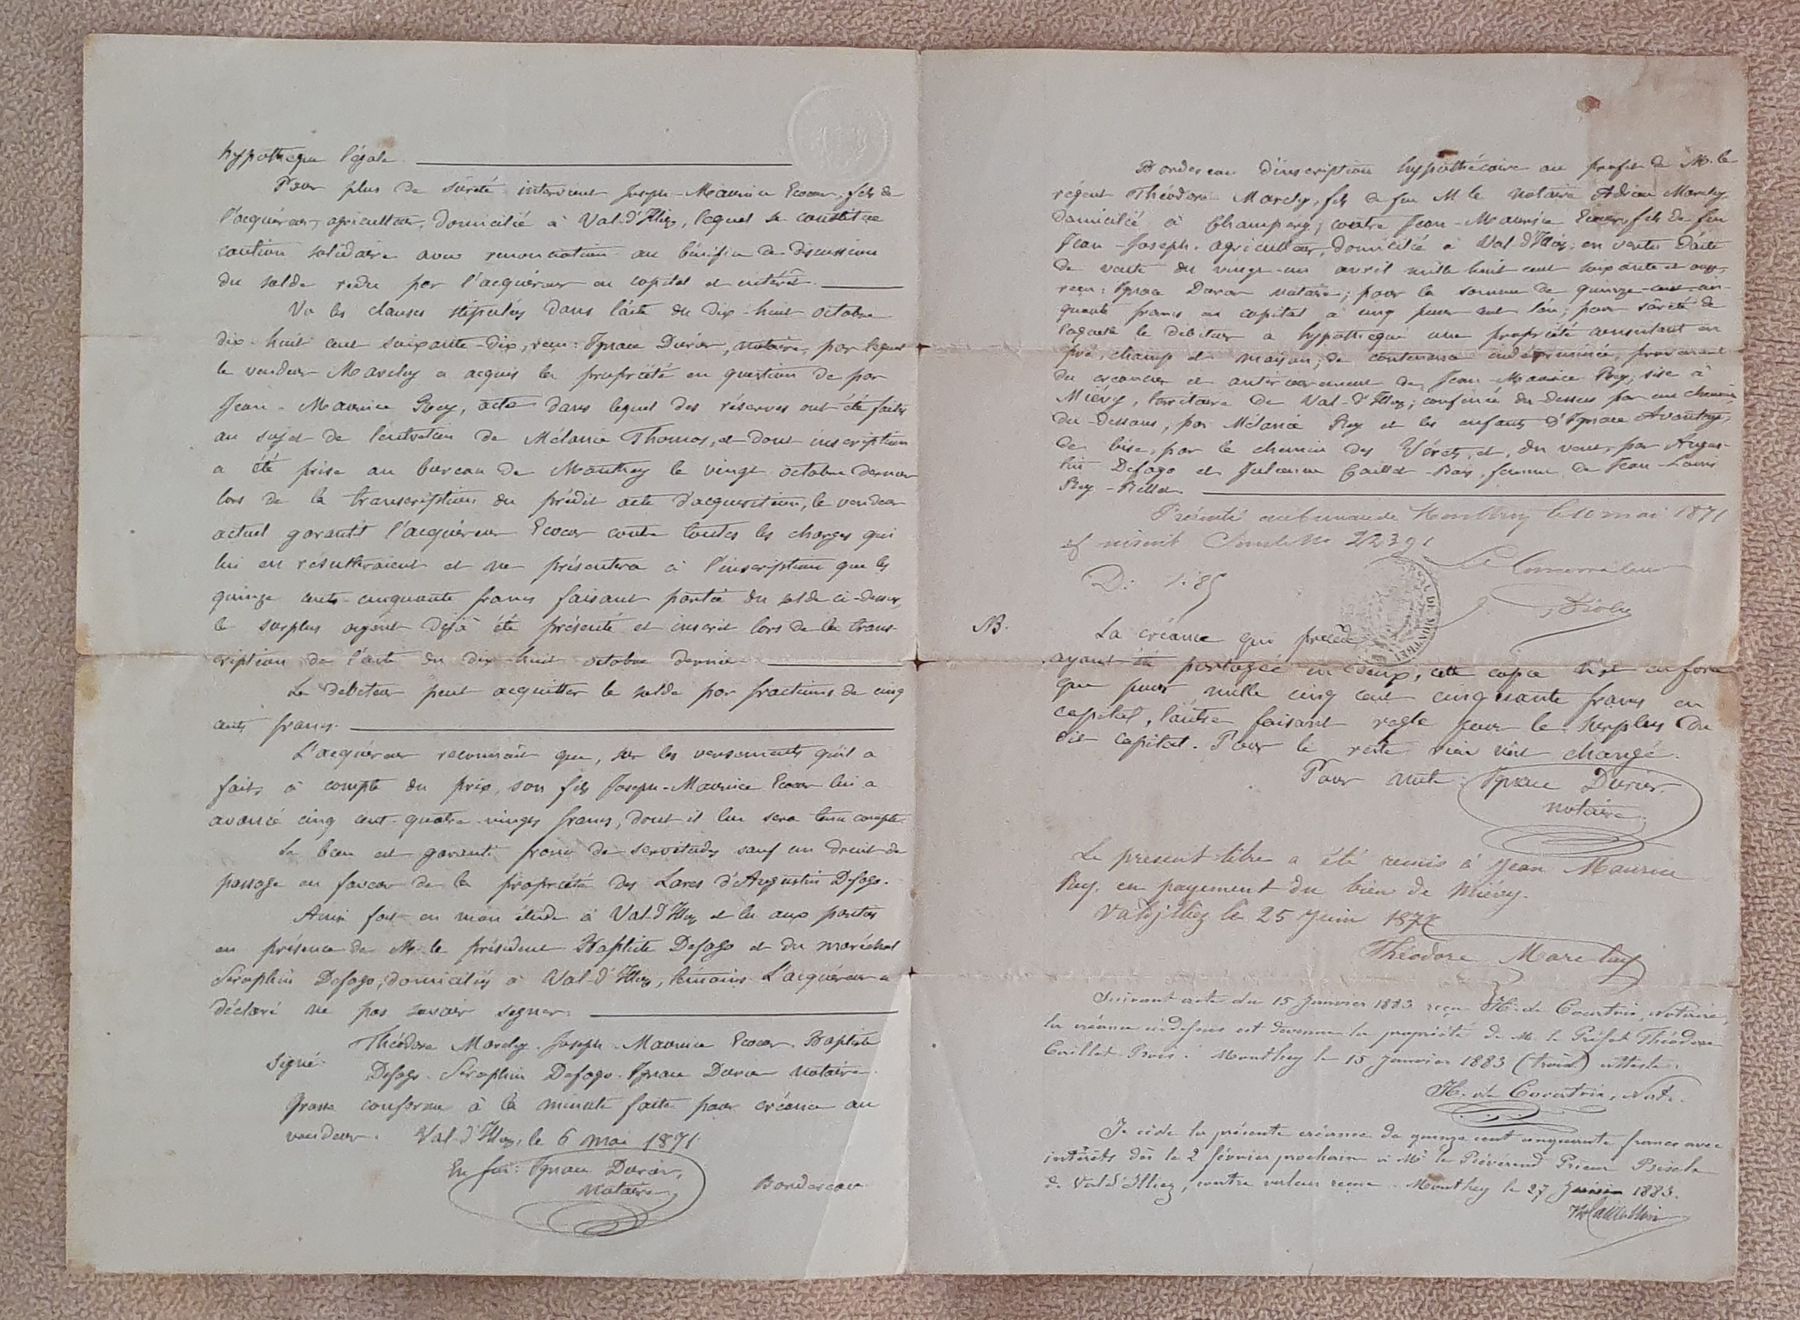 hypothèque légale.
Pour plus de sûreté intervient Joseph-Maurice Ecoeur, fils de
l'acquéreur, agriculteur, domicilié à Val-d'Illiez, lequel se constitue
caution solidaire avec renonciation au bénéfice de discussion
du solde redû par l'acquéreur en capital et intérêt.
Vu les clauses stipulées dans l'acte du dix-huit octobre
dix-huit cent soixante-dix, reçu: Ignace Durier, notaire, par lequel
le vendeur Marclay a acquis la propriété en question de par
Jean-Maurice Rey, acte dans lequel des réserves ont été faites
au sujet de l'entretien de Mélanie Thomas, et dont inscription
a été prise au bureau de Monthey le vingt octobre dernier
lors de la transcription du prédit acte d'acquisition, le vendeur
actuel garantit l'acquéreur Ecoeur contre toutes les charges qui
lui en résulteraient et ne présentera à l'inscription que les
quinze cents cinquante francs faisant partie du solde ci-dessus,
le surplus ayant déjà été présenté et inscrit lors de la trans-
cription de l'acte du dix-huit octobre dernier.
Le débiteur peut acquitter le solde par fractions de cinq
cents francs.
L'acquéreur reconnaît que, sur les versements qu'il a
faits à compte du prix, son fils Joseph-Maurice Ecoeur lui a
avancé cinq cent quatre-vingts francs, dont il lui sera tenu compte.
Le bien est garanti franc de servitudes sauf un droit de
passage en faveur de la propriété des Lares d'Augustin Defago.
Ainsi fait en mon étude à Val-d'Illiez et lu aux parties
en présence de Mr le président Baptiste Defago et du maréchal
Séraphin Defago, domiciliés à Val-d'Illiez, témoins. L'acquéreur a
déclaré ne pas savoir signer.
Signé: Théodore Marclay. Joseph-Maurice Ecoeur. Baptiste
Defago. Séraphin Defago. Ignace Durier notaire.
Grosse conforme à la minute faite pour créance au
vendeur. Val-d'Illiez, le 6 mai 1871.
En foi: Ignace Durier,
notaire
Bordereau
Bordereau d'inscription hypothécaire au profit de M. le
régent Théodore Marclay, fils de feu M le notaire Adrien Marclay
domicilié à Champéry; contre Jean-Maurice Ecoeur, fils de feu
Jean-Joseph, agriculteur, domicilié à Val-d'Illiez; en vertu d'acte
de vente du vingt-un avril mille huit cent soixante et onze,
reçu: Ignace Durier notaire; pour la somme de quinze-cent-cin-
quante francs en capital à cinq pour cent l'an; pour sûreté de
laquelle le débiteur a hypothéqué une propriété consistant en
pré, champ et maison, de contenance indéterminée, provenant
du créancier et antérieurement de Jean-Maurice Rey, sise à
Miévy, territoire de Val-d'Illiez; confinée du dessus par un chemin,
du-dessous, par Mélanie Rey et les enfants d'Ignace Avanthey,
de bise, par le chemin des et, du vent, par Augus-
tin Defago et Julienne Caillet-Bois, femme de Jean-Louis
Rey-Bellet
Présenté au bureau de Monthey le 10 mai 1871
et inscrit No 22391
D: 1.85
Le Conservateur
NB. La créance qui précède
ayant été partagée en deux, cette copie n'est en force
que pour mille cinq cent cinquante francs en
capital, l'autre faisant règle pour le surplus du
dit capital. Pour le reste rien n'est changé.
Pour note: Ignace Durier,
notaire.
Le présent titre a été remis à Jean Maurice
Rey, en payement du bien de Miévy.
Val d'Illiez le 25 Juin 187
Théodore Marclay
Suivant acte du 15 Janvier 1883 reçu H. de Cocatrix, Notaire,
la créance ci-dessus est devenue la propriété de M. le Préfet Théodore
Caillet-Bois. Monthey le 15 Janvier 1883 (trois) atteste:
H. de Cocatrix, Not.
Je cède la présente créance de quinze cent cinquante francs avec
intérêts dès le 2 février prochain à Mr le Révérend Prieur
de Val-d'Illiez, contre valeur reçue. Monthey le 27 1883.